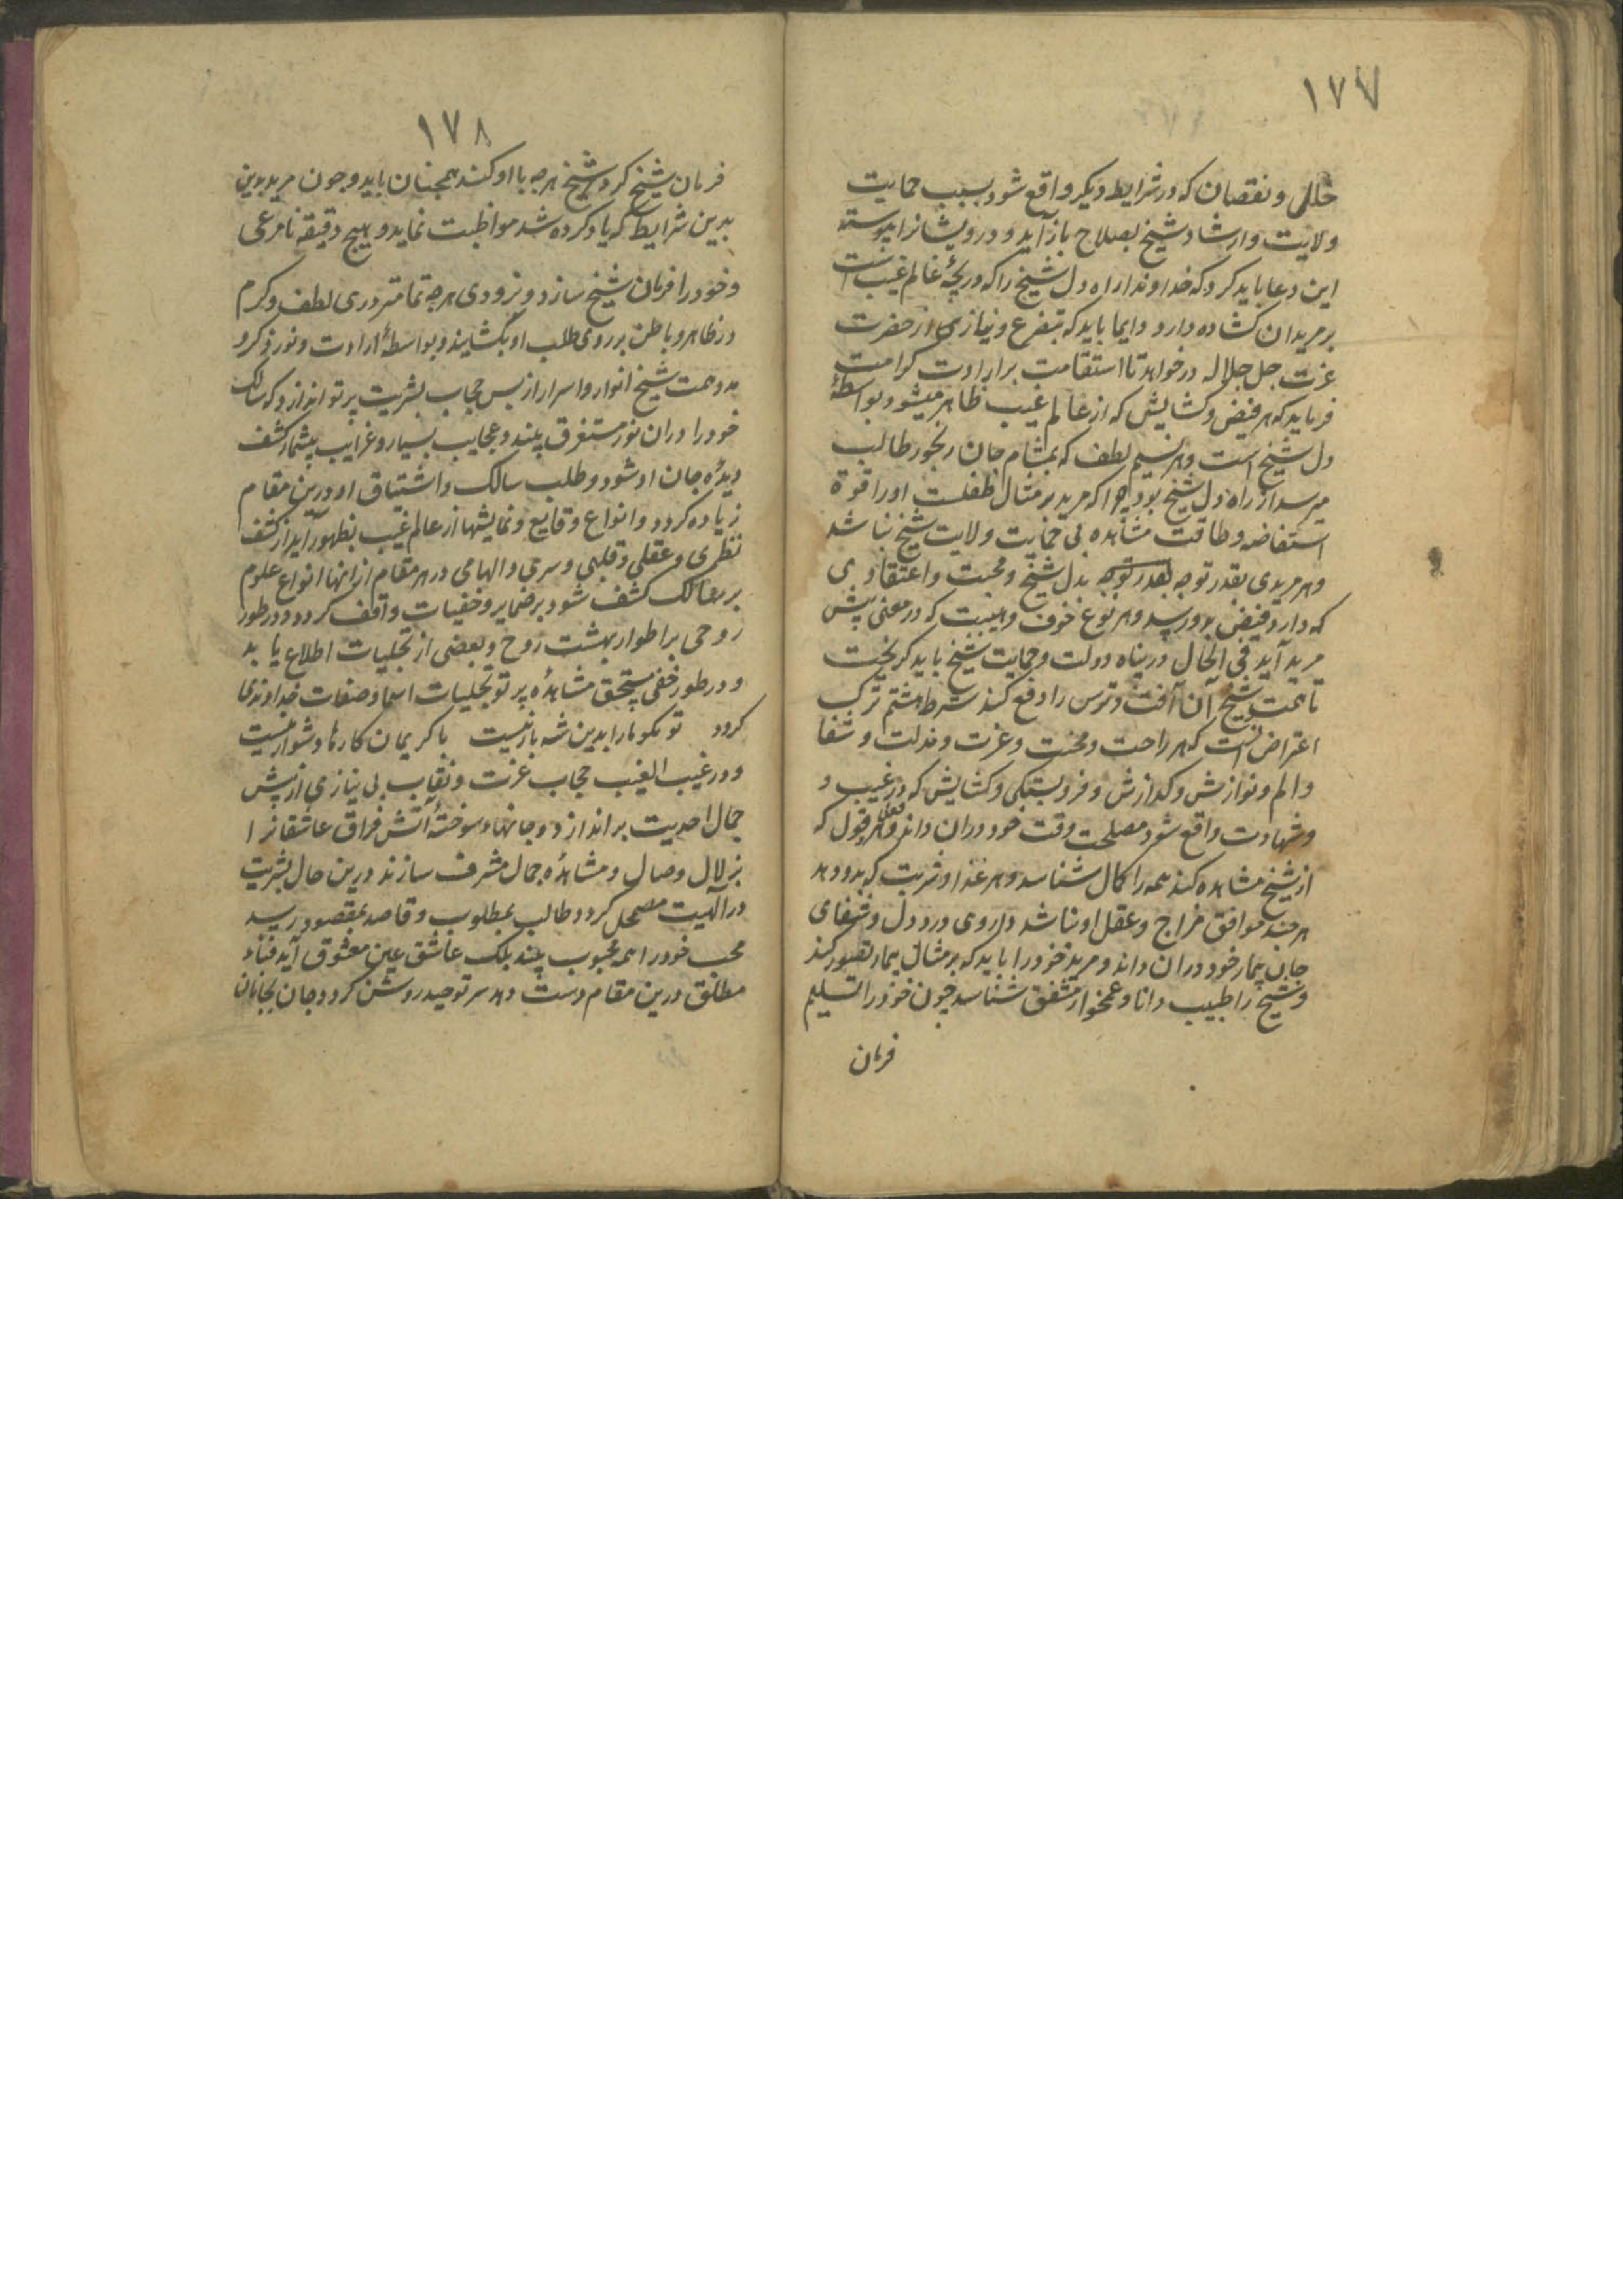 ۱۷۷
خللی و نقصان که در شرایط دیکر واقع شود بسبب حمایت
ولایت وارشاد شیخ بصلاح باز آید و درویشانرا پیوسته
این دعا باید کرد که خداوندا راه دل شیخ را که دریچهٔ عالم غیب است
بر مریدان کشاده دار و دایما باید که بتضرع و نیازی از حضرت
عزت جل جلاله درخواهد تا استقامت برارادت کرامت
فرماید که هر فیض و کشایش که از عالم غیب ظاهر میشود بواسطهٔ
دل شیخ است و هر نسیم لطف که بمشام جان رنجور طالب
میرسد از راه دل شیخ بود چرا که مرید بر مثال طفلست اورا قوة
استفاضه و طاقت مشاهده بی حمایت ولایت شیخ نباشد
وهر مریدی بقدر توجه بقدر توجه بدل شیخ و محبت واعتقادی
که دارد فیض بدو رسد و هر نوع خوف و هیبت که در معنی پیش
مرید آید فی الحال در پناه دولت و حمایت شیخ باید کریخت
تا همت شیخ آن آفت و ترس را دفع کند شرط هشتم ترک
اعتراض است که هر راحت و محنت و عزت و مذلت و شفا
و الم و نوازش و کدازش و فروبستکی و کشایش که در غیب و
وشهادت واقع شود مصلحت وقت خود دران داند و هر فعل و قول که
از شیخ مشاهده کند همه را کمال شناسد و هر غذا و شربت که بدو دهد
هرچند موافق مزاج و عقل او نباشد داروی درد دل و شفای
جان بیمار خود دران داند و مرید خود را باید که بر مثال بیمار تصور کند
و شیخ را طبیب دانا و غمخوار مشفق شناسد چون خود را تسلیم
فرمان
۱۷۸
فرمان شیخ کرد شیخ هرجه با او کند همچنان باید و جون مرید بدین
بدین شرایط که یاد کرده شد مواظبت نماید و هیچ دقیقه نامرعی
و خود را فرمان شیخ سازد و بزودی هرجه تمامتر دری لطف و کرم
در ظاهر و باطن بر روی طلب او بکشایند و بواسطهٔ ارادت و نور ذکر و
مدد همت شیخ انوار و اسرار از پس حجاب بشریت پرتو اندازد که سالک
خود را دران نور مستغرق بیند و عجایب بسیار و غرایب بیشمار کشف
دیدهٔ جان او شود و طلب سالک و اشتیاق او درین مقام
زیاده کردد و انواع وقایع و نمایشها از عالم غیب بظهور آید از کشف
نظری و عقلی و قلبی و سری و الهامی در هر مقام ازاینها انواع علوم
بر سالک کشف شود بر ضمایر و خفیات واقف کردد و در طور
روحی بر اطوار بهشت روح و بعضی از تجلیات اطلاع یابد
و در طور خفی مستحق مشاهدهٔ پرتو تجلیات اسما و صفات خداوندی
کردد تو مکو مارا بدین شه بار نیست با کریمان کارها دشوار نیست
و در غیب الغیب حجاب عزت و نقاب بی نیازی از پیش
جمال احدیت براندازد و جانهاء سوختهٔ آتش فراق عاشقانرا
بزلال وصال و مشاهدهٔ جمال مشرف سازند درین حال بشریت
در آلهیت مضمحل کردد و طالب بمطلوب و قاصد بمقصود رسد
محب خود را همه محبوب بیند بلک عاشق عین معشوق آید فناء
مطلق درین مقام دست دهد سر توحید روشن کردد جان بجانان